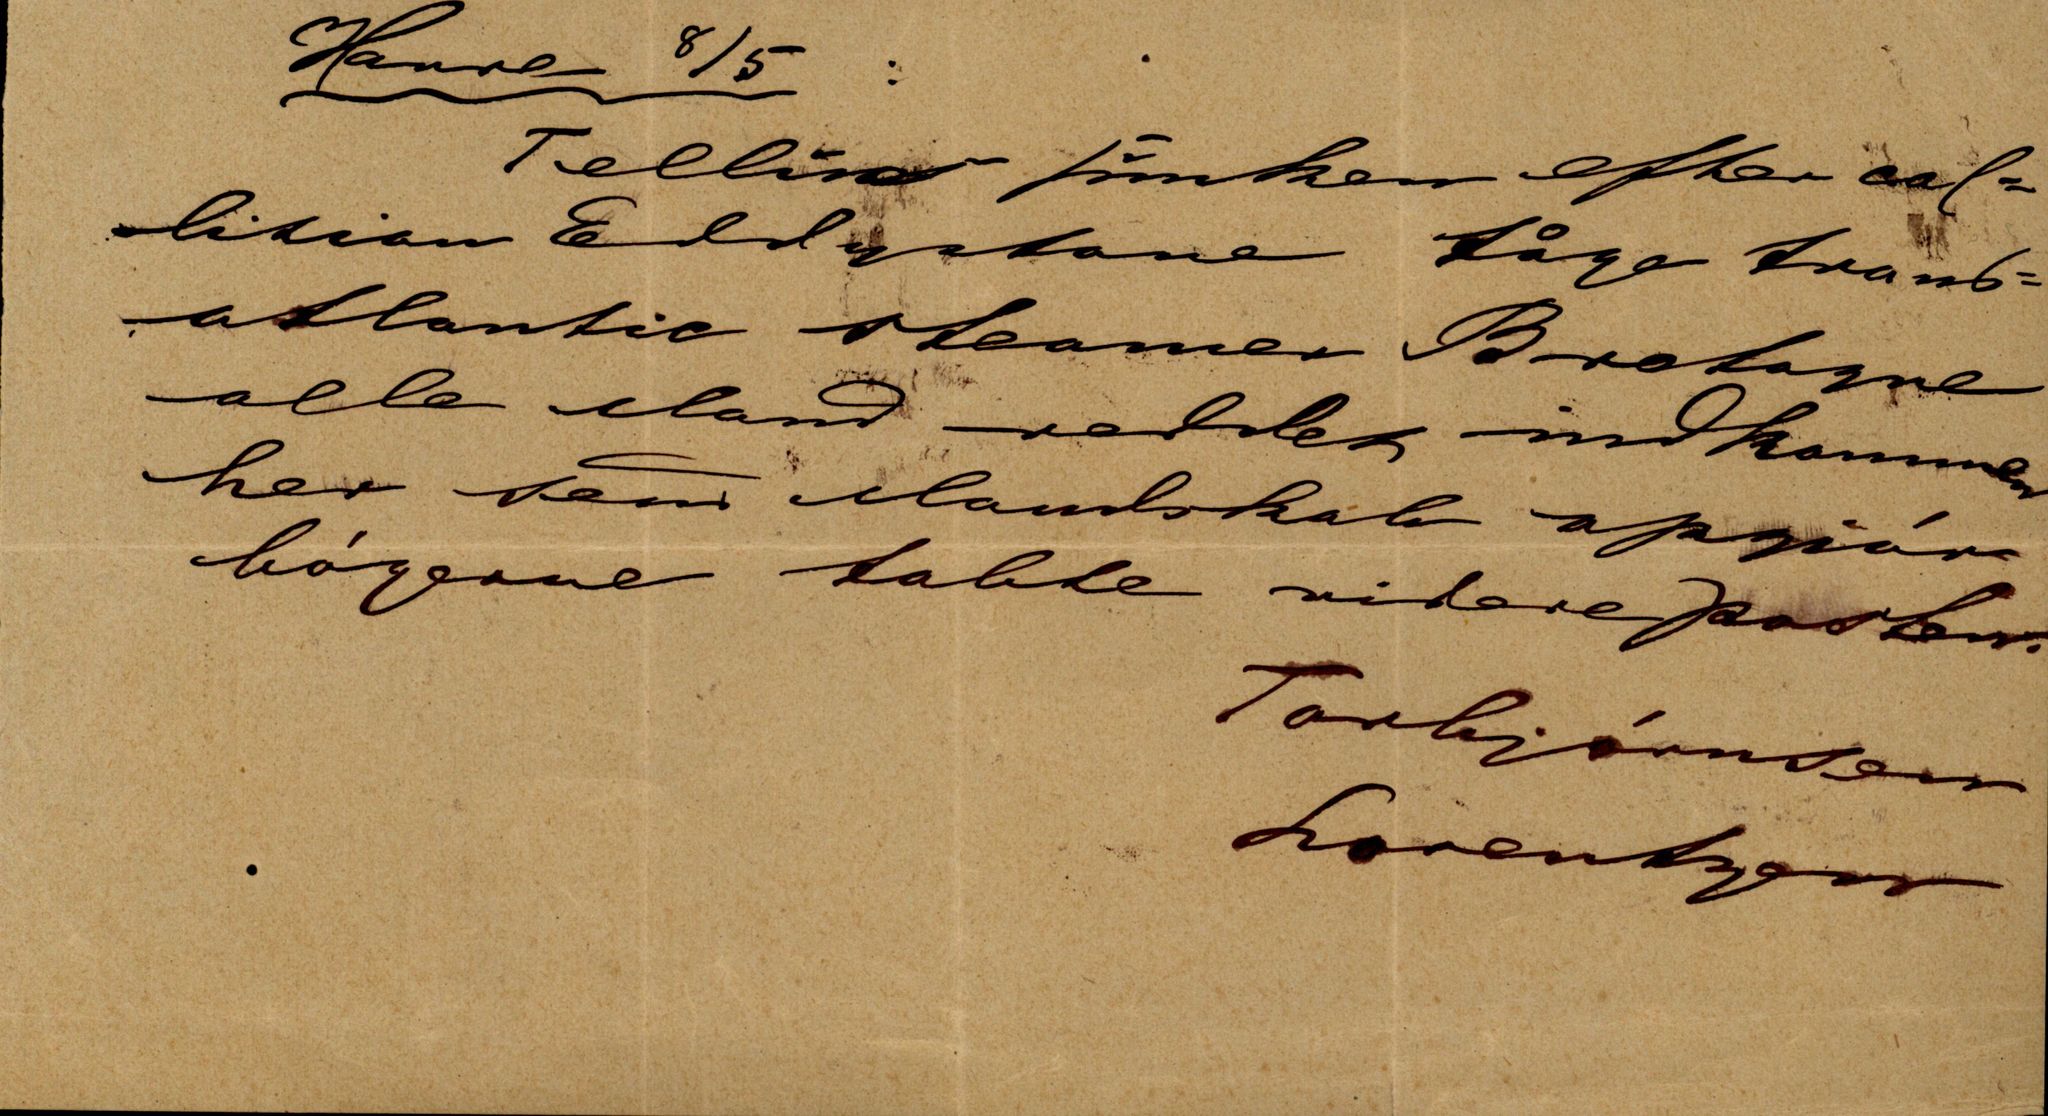 Havre 8/5 :
Tellus sunken efter col=
lision Eddystone tåge trans=
atlantic steamer Bretagne
alle Mand reddet indkommen
her send Mandskab opgjör
bögerne tabte videre posten.
Torbjörnsen
Lorentzen